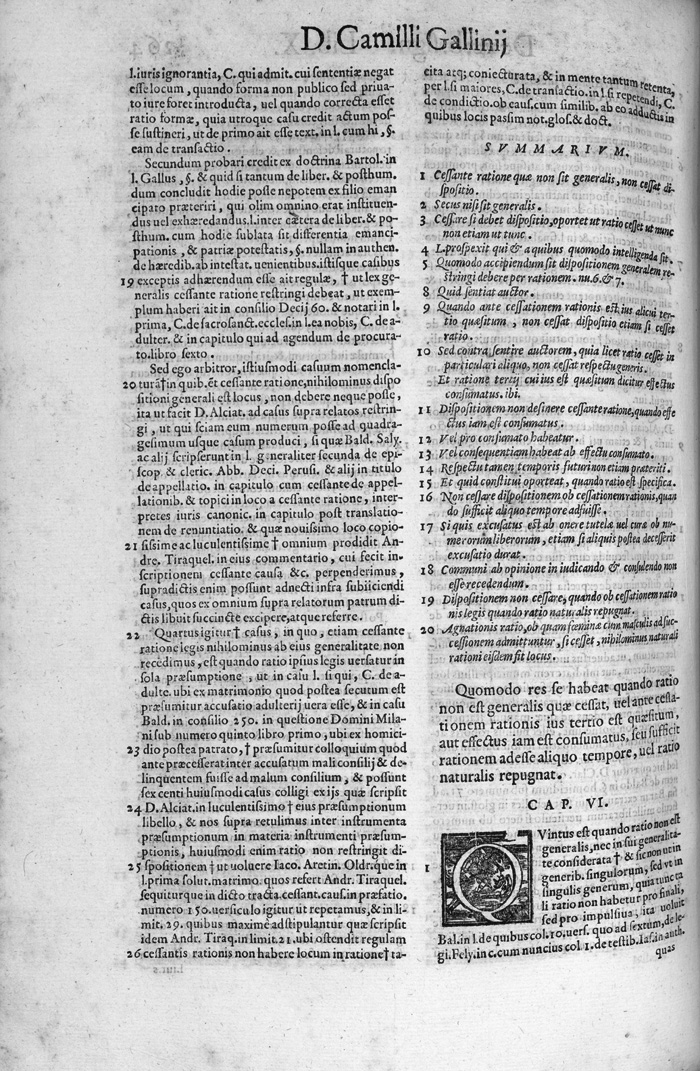 D. Camilli Gallinij
l. iuris ignorantia, C. qui admit. cui sententiæ negat
esse locum, quando forma non publico sed priua-
to iure foret introducta, uel quando correcta esset
ratio formæ, quia utroque casu credit actum pos-
se sustineri, ut de primo ait esse text. in l. cum hi, §.
eam de transactio.
Secundum probari credit ex doctrina Bartol. in
l. Gallus, §. & quid si tantum de liber. & posthum.
dum concludit hodie posse nepotem ex filio eman
cipato præteriri, qui olim omnino erat instituen-
dus uel exhæredandus. l. inter cætera de liber. & po-
sthum. cum hodie sublata sit differentia emanci-
pationis, & patriæ potestatis, §. nullam in authen.
de hæredib. ab intestat. uenientibus. istisque casibus
19 exceptis adhærendum esse ait regulæ, † ut lex ge-
neralis cessante ratione restringi debeat, ut exem-
plum haberi ait in consilio Decij 60. & notari in l.
prima, C. de sacrosanct. eccles. in l. ea nobis, C. de a-
dulter. & in capitulo qui ad agendum de procura-
to. libro sexto.
Sed ego arbitror, istiusmodi casuum nomencla-
20 turã† in quib. et cessante ratione, nihilominus dispo
sitioni generali est locus, non debere neque posse,
ita ut facit D. Alciat. ad casus supra relatos restrin-
gi, ut qui sciam eum numerum posse ad quadra-
gesimum usque casum produci, si quæ Bald. Saly.
ac alij scripserunt in l. generaliter secunda de epi-
scop. & cleric. Abb. Deci. Perusi. & alij in titulo
de appellatio. in capitulo cum cessante de appel-
lationib. & topici in loco a cessante ratione, inter-
pretes iuris canonic. in capitulo post translatio-
nem de renuntiatio. & quæ nouissimo loco copio-
21 sissime ac luculentissime † omnium prodidit An-
dre. Tiraquel. in eius commentario, cui fecit in-
scriptionem cessante causa &c. perpenderimus,
supradictis enim possunt adnecti infra subijciendi
casus, quos ex omnium supra relatorum patrum di-
ctis libuit succincte excipere, atque referre.
22 Quartus igitur † casus, in quo, etiam cessante
ratione legis nihilominus ab eius generalitate non
recedimus, est quando ratio ipsius legis uersatur in
sola præsumptione, ut in casu l. si qui, C. de a-
dulte. ubi ex matrimonio quod postea secutum est
præsumitur accusatio adulterij uera esse, & in casu
Bald. in consilio 250. in questione Domini Mila-
ni sub numero quinto libro primo, ubi ex homici-
23 dio postea patrato, † præsumitur colloquium quod
ante præcesserat inter accusatum mali consilij & de-
linquentem fuisse ad malum consilium, & possunt
sex centi huiusmodi casus colligi ex ijs quæ scripsit
24 D. Alciat. in luculentissimo † eius præsumptionum
libello, & nos supra retulimus inter instrumenta
præsumptionum in materia instrumenti præsum-
ptionis, huiusmodi enim ratio non restringit di-
25 spositionem † ut uoluere Iaco. Aretin. Oldr. que in
l. prima solut. matrimo. quos refert Andr. Tiraquel.
sequiturque in dicto tracta. cessant. cau. in præfatio.
numero 150. uersiculo igitur ut repetamus, & in li-
mit. 29. quibus maxime adstipulantur quæ scripsit
idem Andr. Tiraq. in limit. 21. ubi ostendit regulam
26 cessantis rationis non habere locum in ratione † ta-
cita atq; coniecturata, & in mente tantum retenta,
per l. si maiores, C. de transactio. in l. si repetendi, C.
de condictio. ob caus. cum similib. ab eo adductis in
quibus locis passim not. glos. & doct.
SVMMARIVM.
1 Cessante ratione quæ non sit generalis, non cessat di-
spositio.
2 Secus nisi sit generalis.
3 Cessare si debet dispositio, oportet ut ratio cesset ut nunc
non etiam ut tunc.
4 L. prospexit qui & a quibus quomodo intelligenda sit.
5 Quomodo accipiendum sit dispositionem generalem re-
stringi debere per rationem. nu. 6. & 7.
8 Quid sentiat auctor.
9 Quando ante cessationem rationis est ius alicui ter-
tio quæsitum, non cessat dispositio etiam si cesset
ratio.
10 Sed contra sentire auctorem, quia licet ratio cesset in
particulari aliquo, non cessat respectu generis.
Et ratione tertij cui ius est quæsitum dicitur effectus
consumatus. ibi.
11 Dispositionem non desinere cessante ratione, quando effe
ctus iam est consumatus.
12 Vel pro consumato habeatur.
13 Vel consequentiam habeat ab effectu consumato.
14 Respectu tamen temporis futuri non etiam præteriti.
15 Et quid constitui oporteat, quando ratio est specifica.
16 Non cessare dispositionem ob cessationem rationis, quan
do sufficit aliquo tempore adfuisse.
17 Si quis excusatus est ab onere tutelæ uel curæ ob nu-
merorum liberorum, etiam si aliquis postea decesserit
excusatio durat.
18 Communi ab opinione in iudicando & consulendo non
esse recedendum.
19 Dispositionem non cessare, quando ob cessationem ratio
nis legis quando ratio naturalis repugnat.
20 Agnationis ratio, ob quam fœminæ cum masculis ad suc-
cessionem admittuntur, si cesset, nihilominus naturali
rationi eisdem sit locus.
Quomodo res se habeat quando ratio
non est generalis quæ cessat, uel ante cessa-
tionem rationis ius tertio est quæsitum,
aut effectus iam est consumatus, seu sufficit
rationem adesse aliquo tempore, uel ratio
naturalis repugnat.
CAP. VI.
QVintus est quando ratio non est
generalis, nec in sui generalita-
1 te considerata † & sic non ut in
generib. singulorum, sed ut in
singulis generum, quia tunc ta
li ratio non habetur pro finali,
sed pro impulsiua, ita uoluit
Bal. in l. de quibus col. 10. uers. quo ad sextum, de le-
gi. Fely. in c. cum nuncius col. 1. de testib. Ias. in auth.
quas